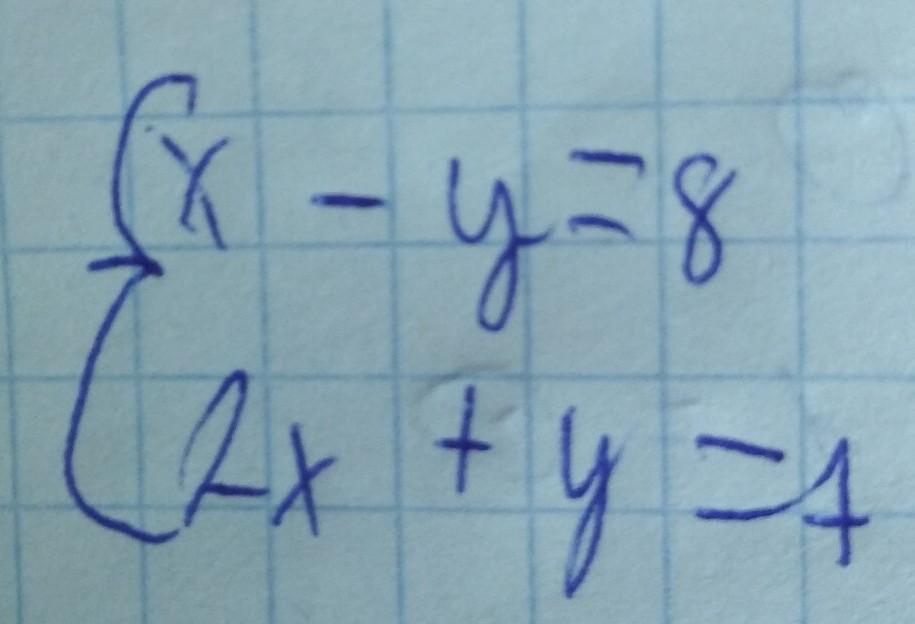 x - y = 8
2x + y = 1